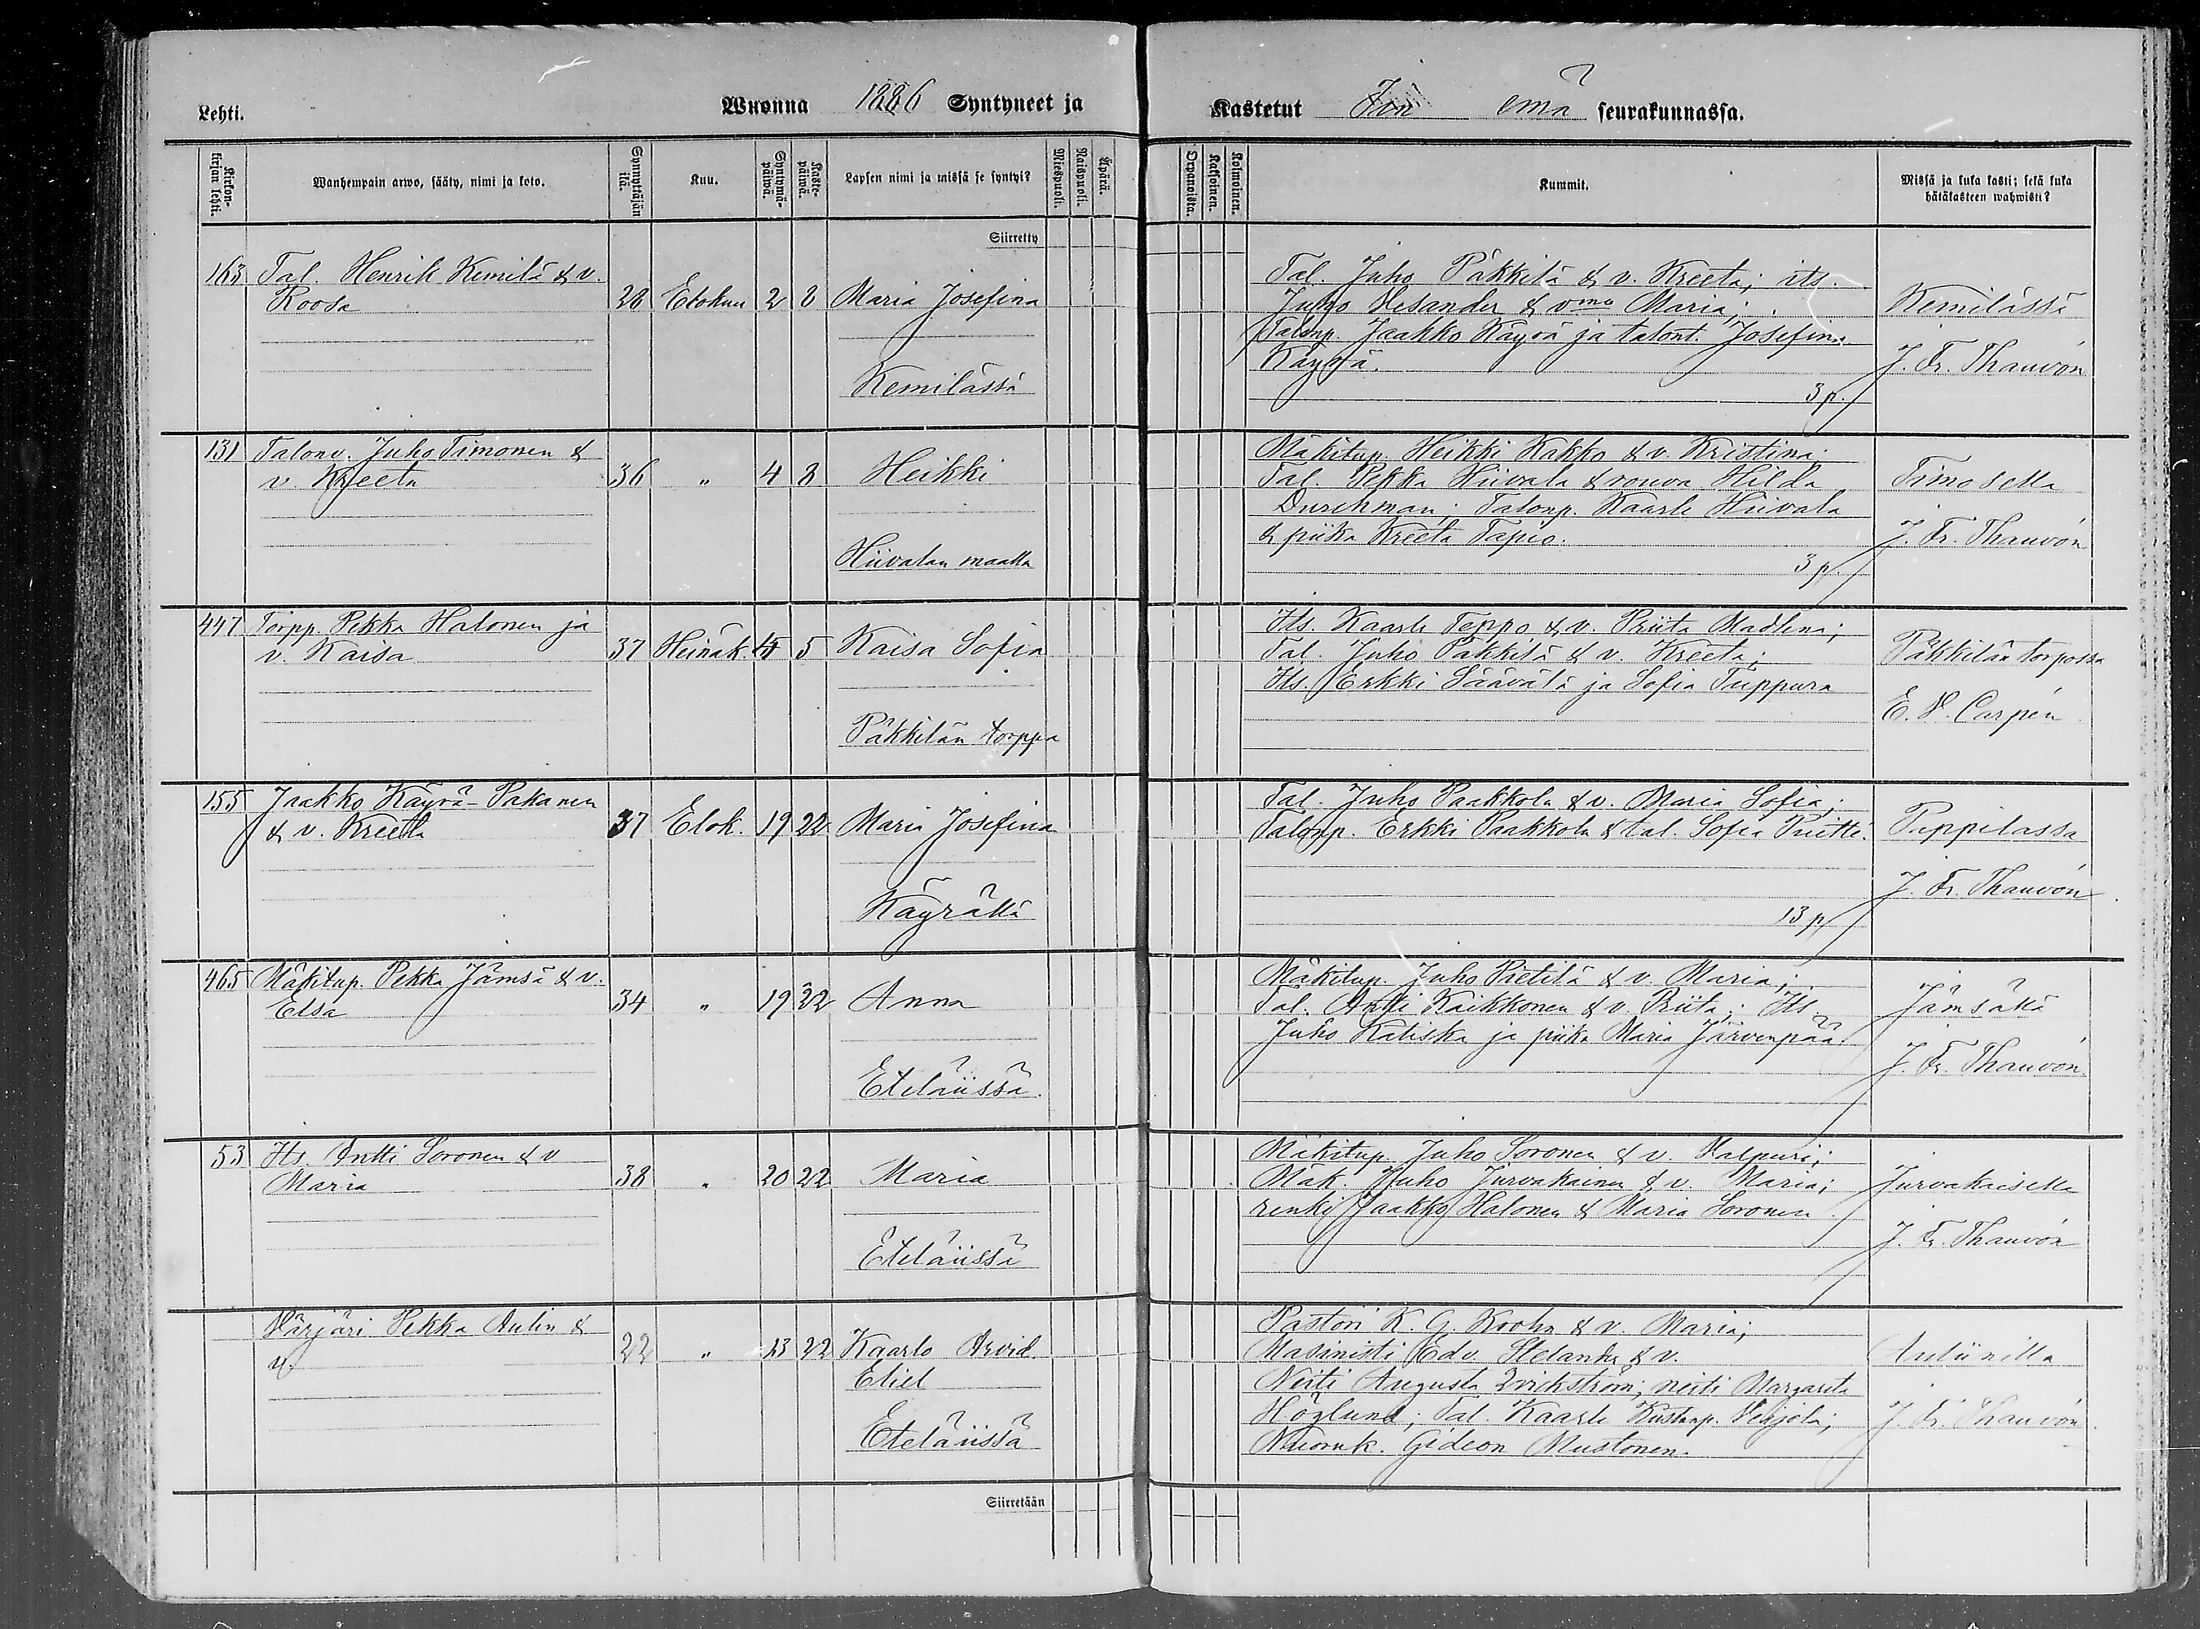 Lehti.
Wuonna 1886 Syntyneet ja
Kastetut emä seurakunnassa.
Kirkonkirjan lehti.
Wanhempain arwo, sääty, nimi ja koto.
Synnyttäjän ikä.
Kuu.
Syntymäpäiwä.
Kastepäiwä.
Lapsen nimi ja missä se syntyi?
Miespuoli.
Naispuoli.
Äpärä.
Kaksoinen.
Kolmoinen.
Kummit.
Missä ja kuka kasti; sekä kuka
hätäkasteen wahwisti?
Siirretty
163 Tal. Henrik Kemilä & v.
Roosa 28 Elokuu 2 8 Maria Josefina
Kemilässä
Tal. Juho Päkkilä & v. Kreeta; its.
Juho Vesander & vmo Maria;
Talonp. Jaakko Käyrä ja talont. Josefina
Käyrä.
3 p.
Kemilässä
J. Fr. Thauvón
131 Talonv. Juho Timonen &
v. Kreeta 36 " 4 8 Heikki
Hiivalan maalla
Mäkitup. Heikki Kakko & v. Kristina;
Tal. Pekka Hiivala & rouva Hilda
Durchman; Talonp. Kaarle Hiivala
& piika Kreeta Tapio.
3 p.
Timosella
J. Fr. Thauvón
447 Torpp. Pekka Halonen ja
v. Kaisa 37 Heinäk. 5 Kaisa Sofia
Päkkilän torppa
Its. Kaarle Teppo & v. Priita Madlena;
Tal. Juho Päkkilä & v. Kreeta;
Its. Erkki Säävälä ja Sofia Tuppura
Päkkilän torpassa
E. V. Carpén
155 Jaakko Käyrä-Pakanen
& v. Kreeta 37 Elok. 19 22 Maria Josefina
Käyrällä
Tal. Juho Paakkola & v. Maria Sofia;
Talonp. Erkki Paakkola & tal. Sofia
13 p
Pappilassa
J. Fr. Thauvón
465 Mäkitup. Pekka Jämsä & v.
Elsa 34 " 19 22 Anna
Eteläiissä.
Mäkitup. Juho Pietilä & v. Maria;
Tal. Antti Kaikkonen & v. Priita; Its.
Juho Katiska ja piika Maria Järvenpää
Jämsällä
J. Fr. Thauvón
53 Its. Antti Soronen & v
Maria 38 " 20 22 Maria
Eteläiissä
Mäkitup. Juho Soronen & v. Valpuri;
Mäk. Juho Jurvakainen & v. Maria;
renki Jaakko Halonen & Maria Soronen
Jurvakaisella
J. Fr. Thauvón
Värjäri Pekka Aulin &
v. 22 " 13 22 Kaarlo Arvid
Eliel
Eteläiissä
Pastori K. G. Krohn & v. Maria;
Masinisti Edv. & v.
Neiti Augusta Qvickström; neiti Margareta
Höglund; Tal. Kaarle Verjola;
Nuoruk. Gideon Mustonen.
Auliinilla
J. Fr. Thauvón
Siirretään